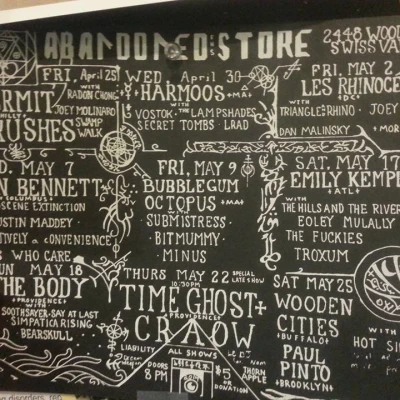 ABANDONED STORE
2448 WOOD
SWISS VA
FRI, April 25
WITH
RADON CHONG
ERMIT
JOEY MOLINARO
RUSHES
SWAMP
WALK
WED. April 30
HARMOOS
+MA+
WITH
VOSTOK · THE LAMPSHADES
SECRET TOMBS · LRAD
FRI. MAY 2
LES RHINOCÉ
+DC+
WITH
TRIANGLE+RHINO · JOEY
DAN MALINSKY
+MOR
D. MAY 7
N BENNETT
+COLUMBUS+
SCENE EXTINCTION
USTIN MADDEY
TIVELY A CONVENIENCE
S WHO CARE
FRI. MAY 9
BUBBLEGUM
OCTOPUS
+MA+
WITH
SUBMISTRESS
BITMUMMY
MINUS
SAT. MAY 17
EMILY KEMP
+ATL+
WITH
THE HILLS AND THE RIVER
EOLEY MULALLY
THE FUCKIES
TROXUM
UN MAY 18
THE BODY
+PROVIDENCE+
WITH
SOOTHSAYER · SAY AT LAST
SIMPATICA RISING
BEARSKULL
THURS MAY 22
SPECIAL
LATE SHOW
10:30PM
TIME GHOST+
PROVIDENCE
CRAOW
LIABILITY
ALL SHOWS
DOORS
8 PM
$5
OR
DONATION
THORN
APPLE
SAT MAY 25
WOODEN
CITIES
+BUFFALO+
PAUL
PINTO
+BROOKLYN+
WITH
HOT SI